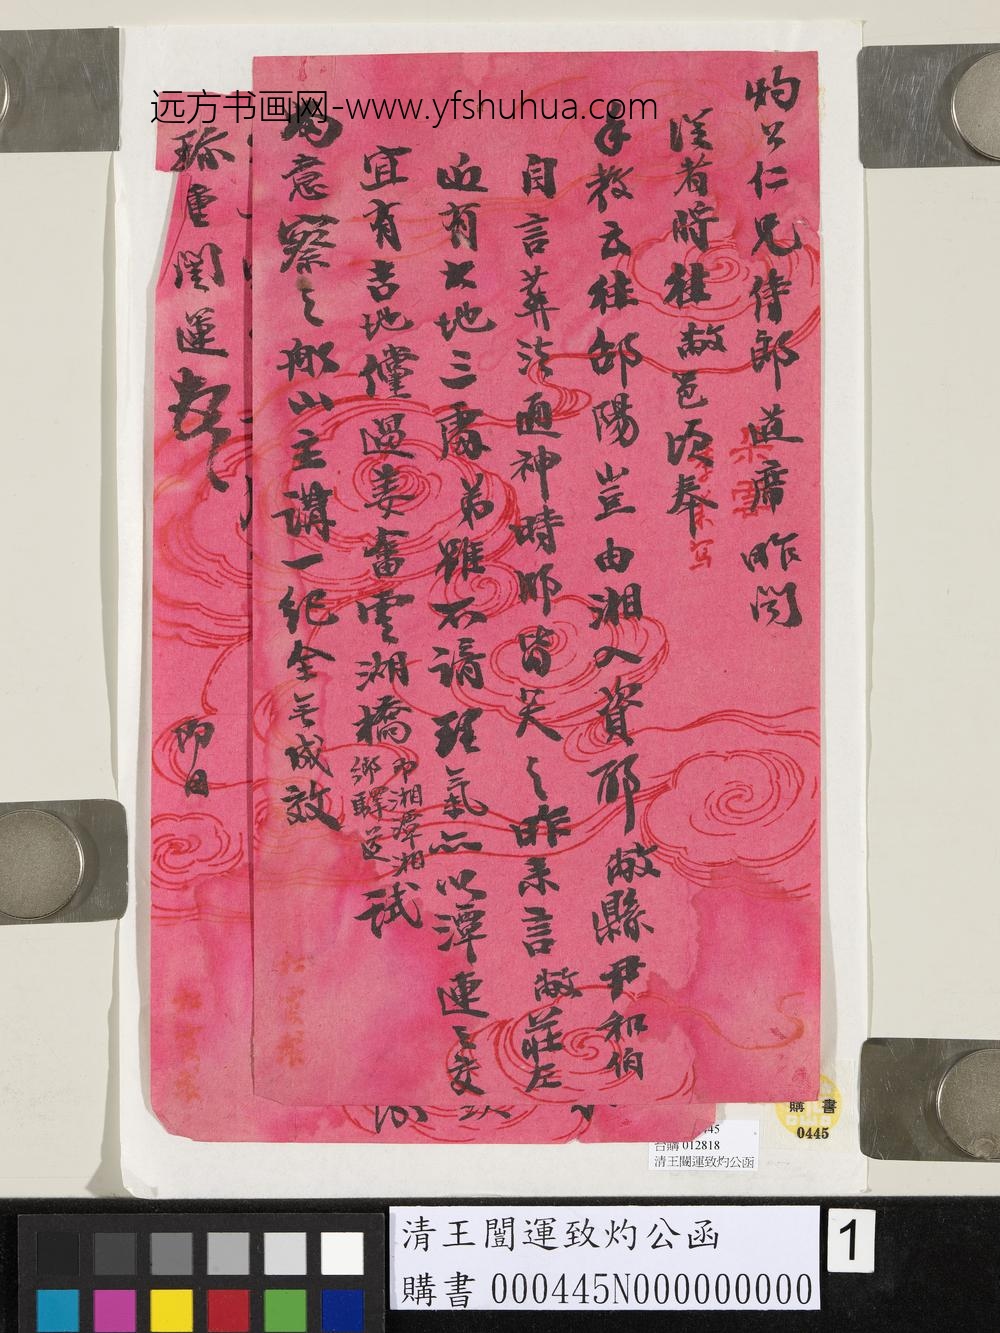 远方书画网-www.yfshuhua.com
灼公仁兄侍郎道席昨闻
從者將往敝邑頃奉
手教云往邵陽豈由湘入資耶敝縣尹和伯
自言葬法通神時師皆笑之昨来言敝莊左
近有大地三處弟雖不諳理氣亦以潭連三交
宜有吉地儻過婁
雲湖橋
即湘潭湘
鄉驛道
試
留意察之船山主講一紀全無成效
珎重闓運
即日
松雲
購書
0445
台購 012818
清王闓運致灼公函
清王闓運致灼公函
購書 000445N000000000
1